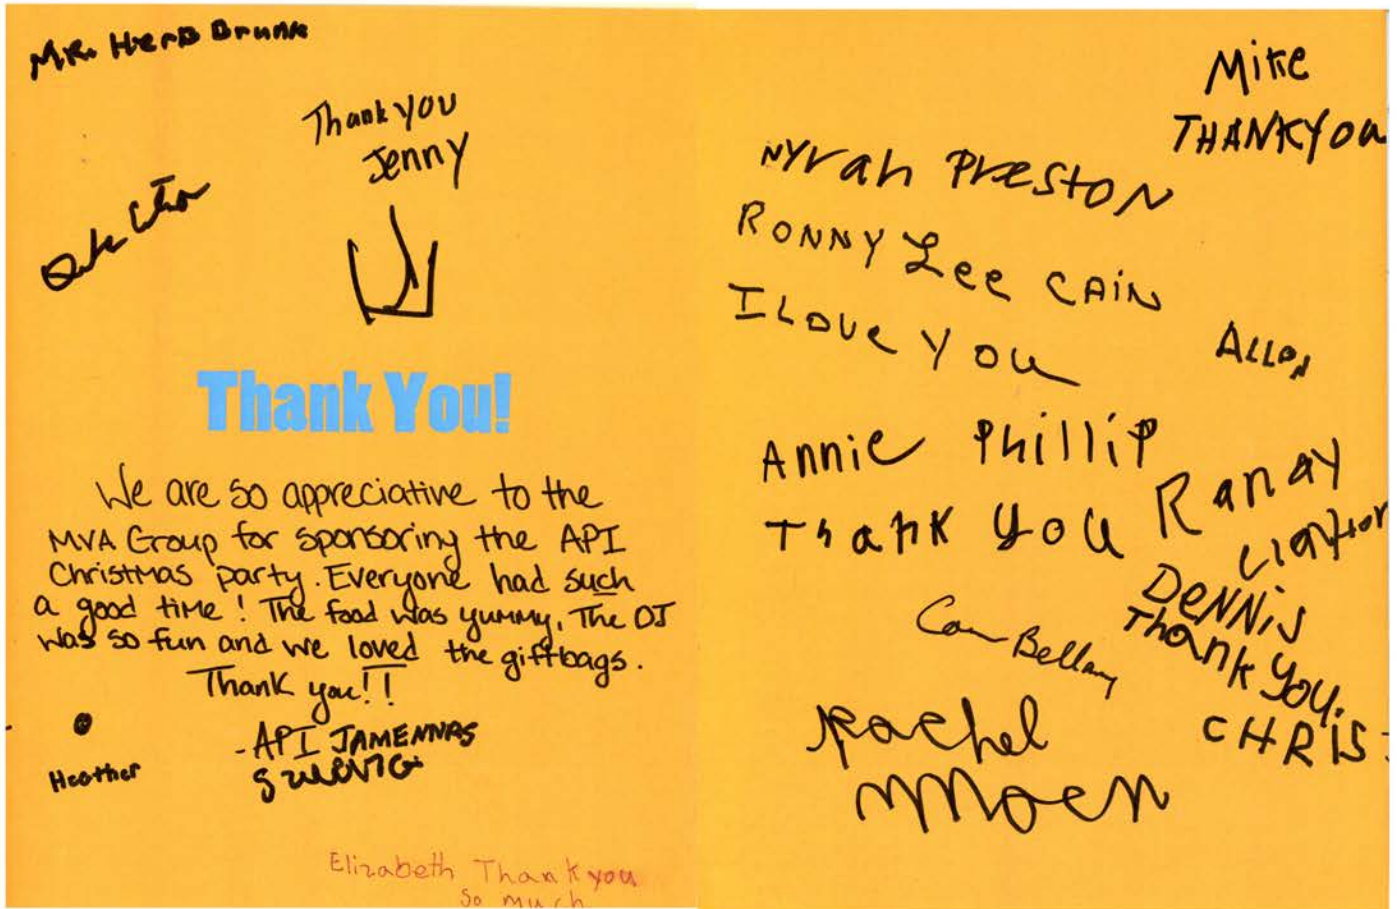 Mr. Herb Brunk
Thank you
Jenny
Thank You!
We are so appreciative to the
MVA Group for sponsoring the API
Christmas party. Everyone had such
a good time! The food was yummy, The DJ
was so fun and we loved the giftbags.
Thank you!!
- API
Heather
Elizabeth Thank you
so much
Mike
THANKYOU
NYrah Preston
RONNY Lee CAIN
I Love You
Allen
Annie Phillip
Thank you
Randy
DENNiS
Thank you.
Bellamy
CHRIS
Rachel
Moen